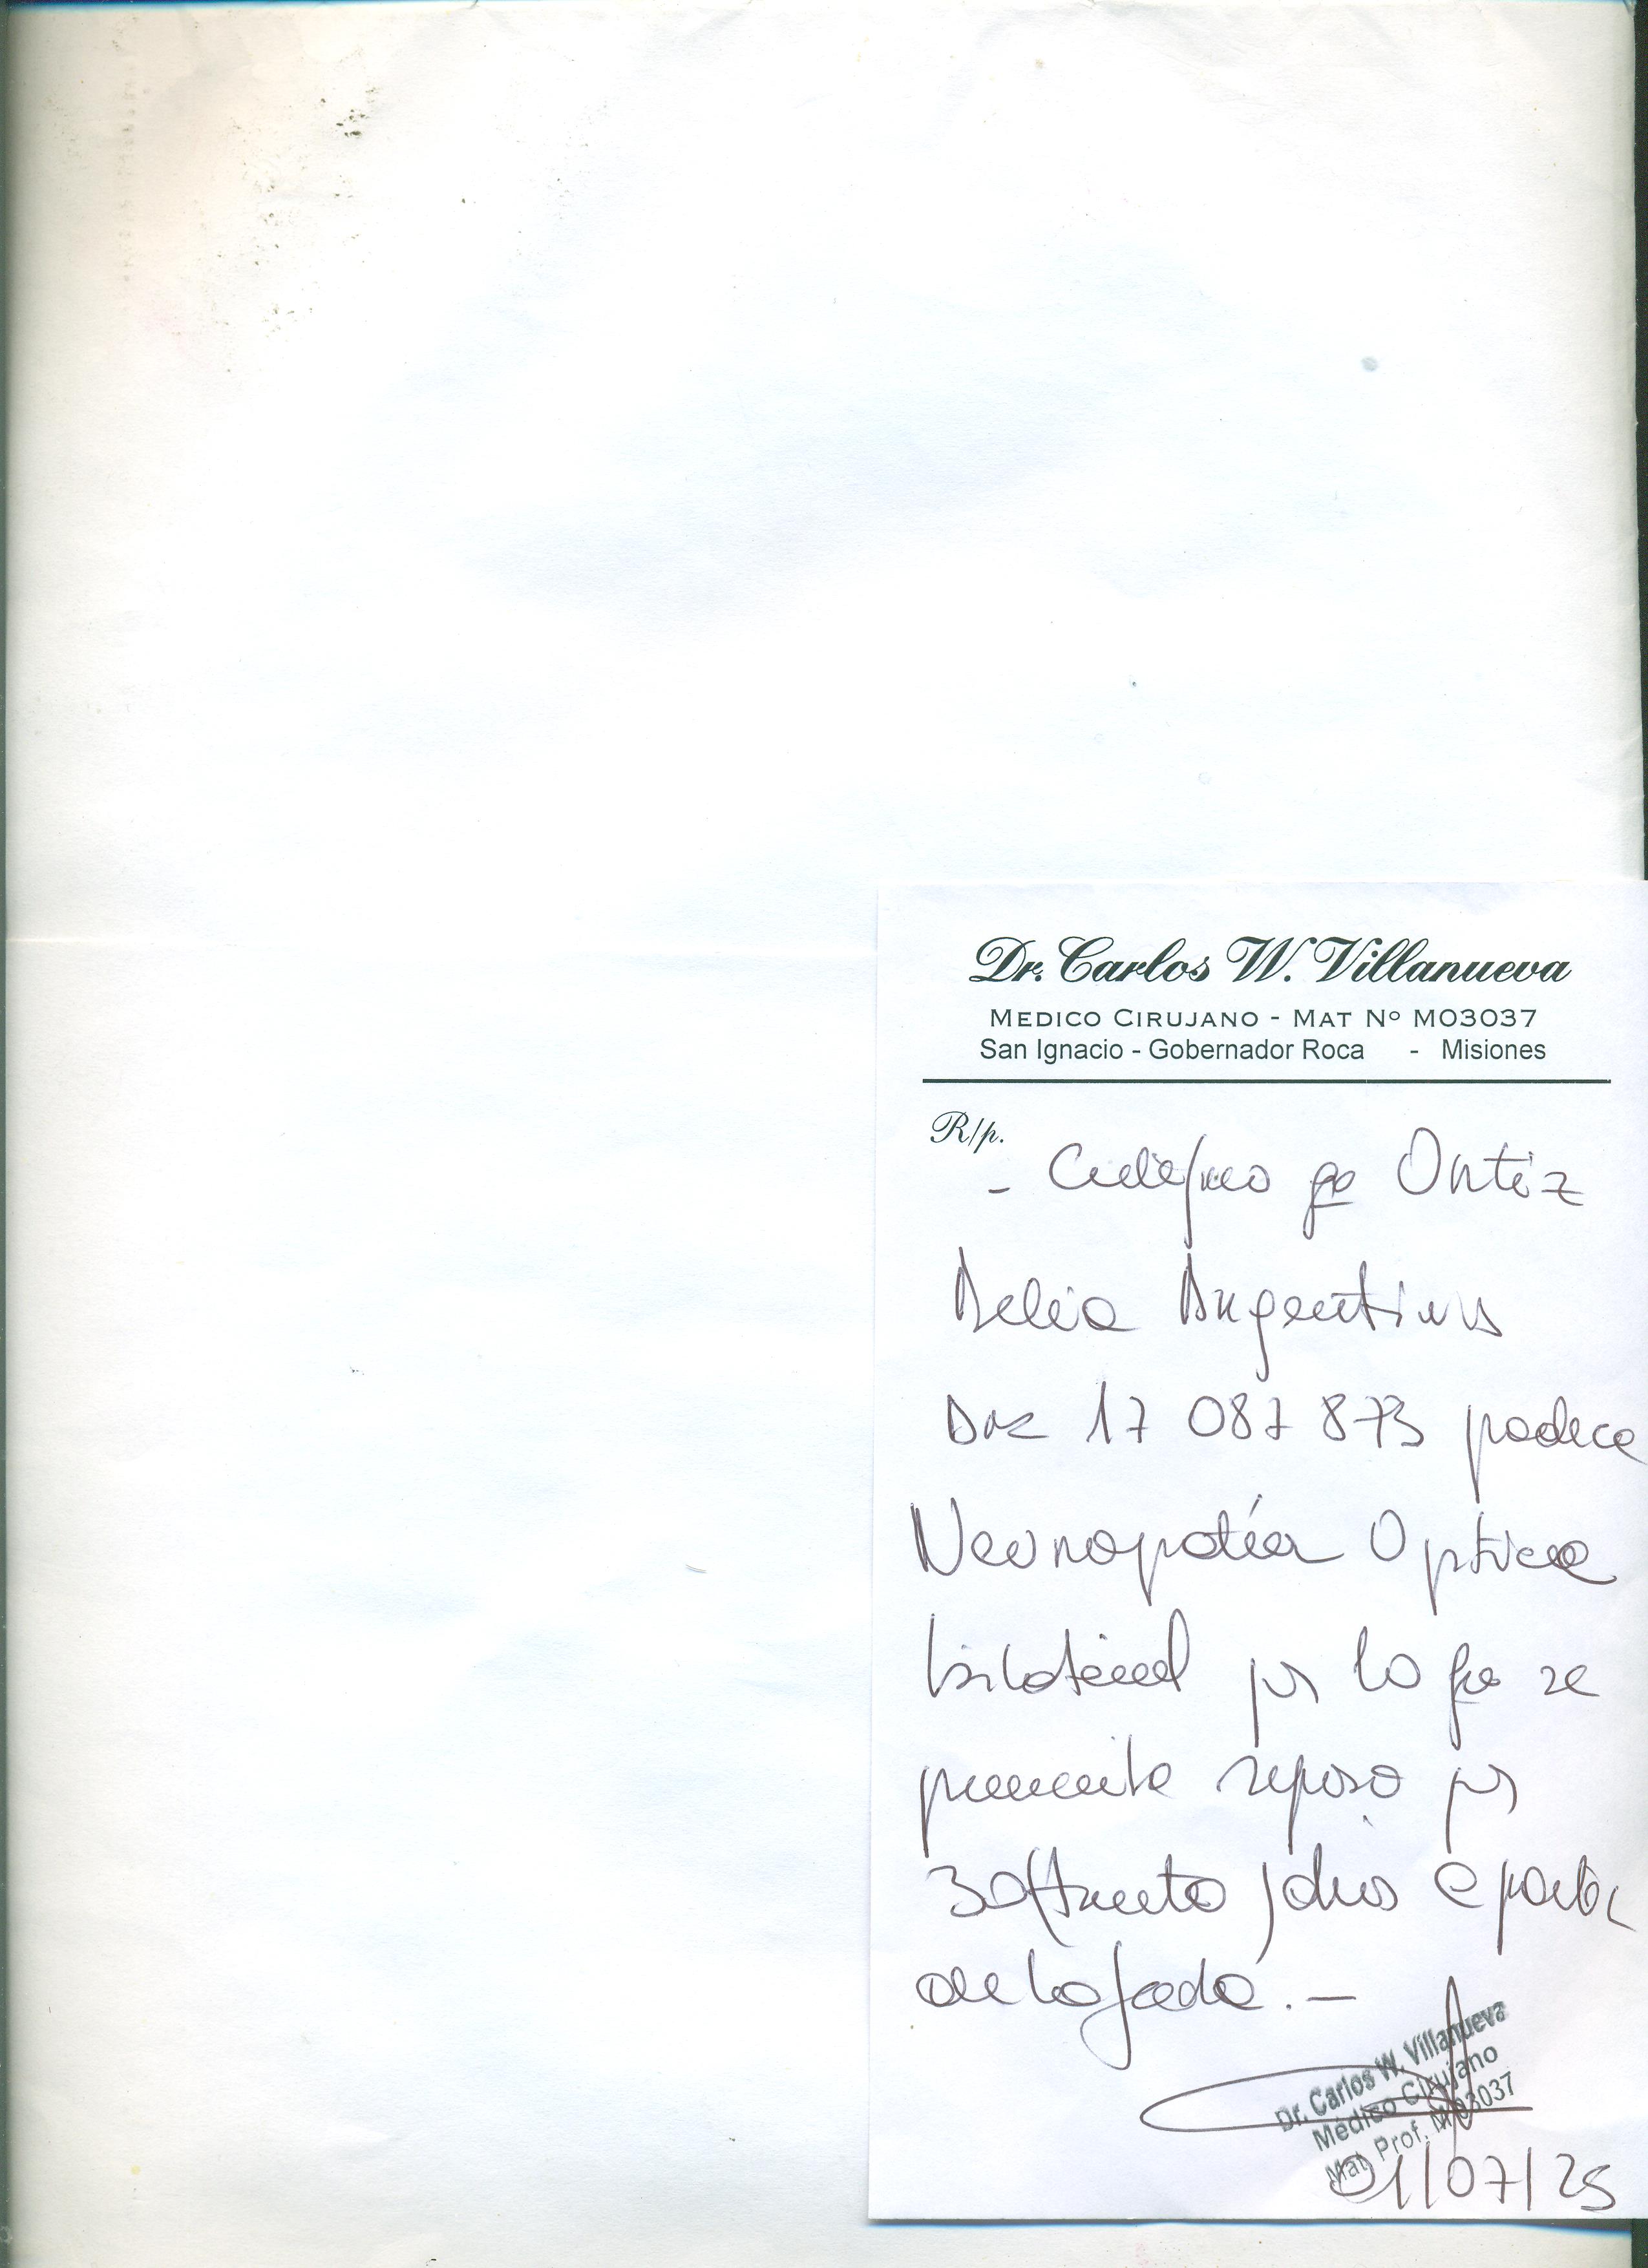 Dr. Carlos W. Villanueva
MEDICO CIRUJANO - MAT Nº M03037
San Ignacio - Gobernador Roca - Misiones
R/p.
- Certifico que Ortiz
Delia Argentina
DNI 17 087 873 padece
Neuropatía Optica
bilateral por lo que se
reposo por
30 (treinta) días a partir
de la fecha. -
Dr. Carlos W. Villanueva
Médico Cirujano
Mat. Prof. M 03037
01/07/25